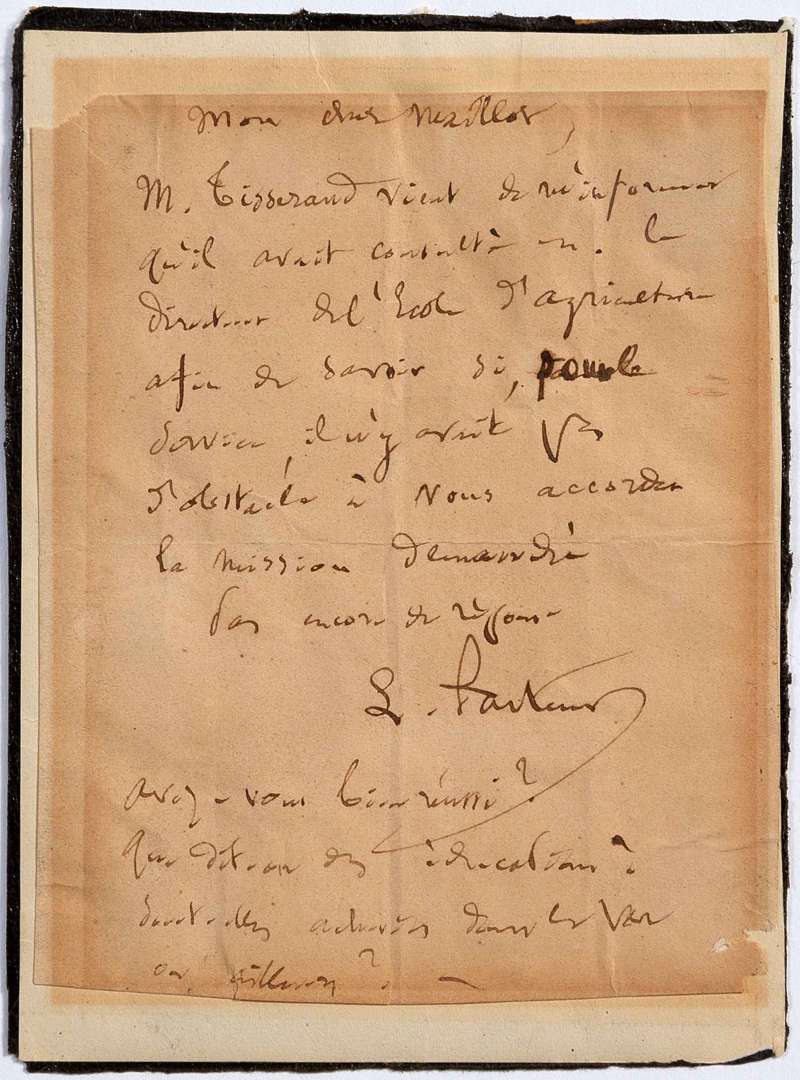 Mon cher Maillot,
M. Tisserand vient de m'informer
qu'il avait consulté M. le
directeur de l'École d'agriculture
afin de savoir si, pour le
service, il n'y avait pas
d'obstacle à vous accorder
la mission demandée
Pas encore de réponse
L. Pasteur
Avez-vous bien réussi?
Que dit-on des éducations?
Sont-elles achevées dans le Var
ou ailleurs?